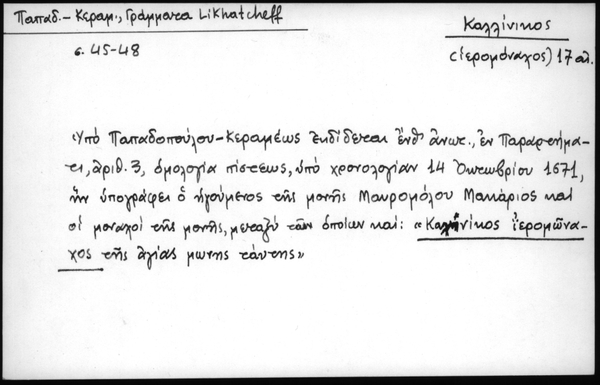 Παπαδ.-Κεραμ., Γράμματα Likhatcheff
σ. 45-48
Καλλίνικος
(ἱερομόναχος) 17 αἰ.
Ὑπό Παπαδοπούλου-Κεραμέως ἐκδίδεται ἔνθ' ἄνωτ., ἐν Παραρτήμα-
τι, ἀριθ. 3, ὁμολογία πίστεως, ὑπό χρονολογίαν 14 Ὀκτωβρίου 1671,
ἥν ὑπογράφει ὁ ἡγούμενος τῆς μονῆς Μαυρομόλου Μακάριος καί
οἱ μοναχοί τῆς μονῆς, μεταξύ τῶν ὁποίων καί: «Καλινίκος ἱερομῶνα-
χος τῆς ἁγίας μωνης τάυτης»